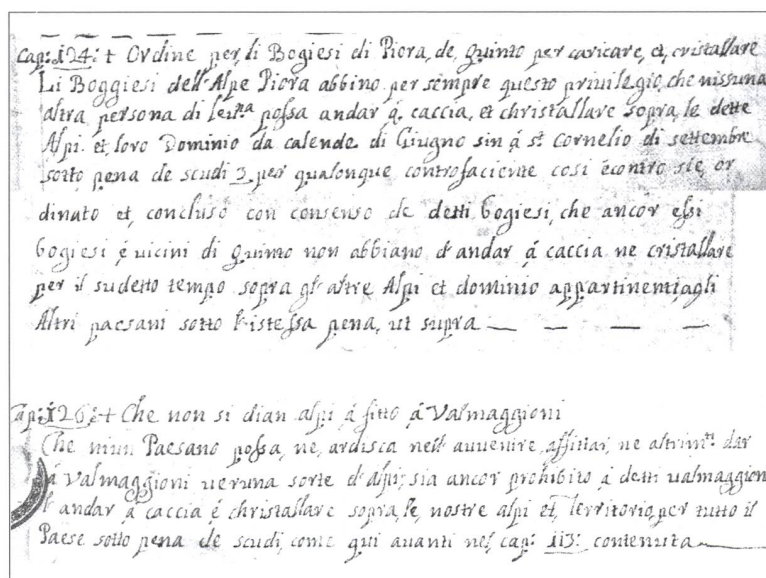 Cap: 124: + Ordine per li Bogiesi di Piora, de Quinto per caricare, et cristallare
Li Boggiesi dell'Alpe Piora abbino per sempre questo privilegio, che nissuna
altra persona di leu.na possa andar á caccia, et christallare sopra le dette
Alpi et loro Dominio da calende di Giugno sin á s.t Cornelio di settembre
sotto pena de scudi 3 per qualonque controfaciente cosi écontro sie, or
dinato et, concluso con consenso de detti bogiesi, che ancor essi
bogiesi é vicini di Quinto non abbiano d'andar á caccia ne cristallare
per il sudetto tempo sopra gl'altre Alpi et dominio appartinenti agli
Altri paesani sotto l'istessa pena, ut supra — — — —
Cap: 126: + Che non si dian alpi á fitto á Valmaggioni
Che niun Paesano possa, ne, ardisca nell' avvenire, affittar, ne altrim.ti dar
á Valmaggioni veruna sorte d'alpi, sia ancor prohibito á detti valmaggioni
l'andar á caccia é christallare sopra le nostre alpi et Territorio, per tutto il
Paese sotto pena de scudi, come qui avanti nel cap: 113: contenuta